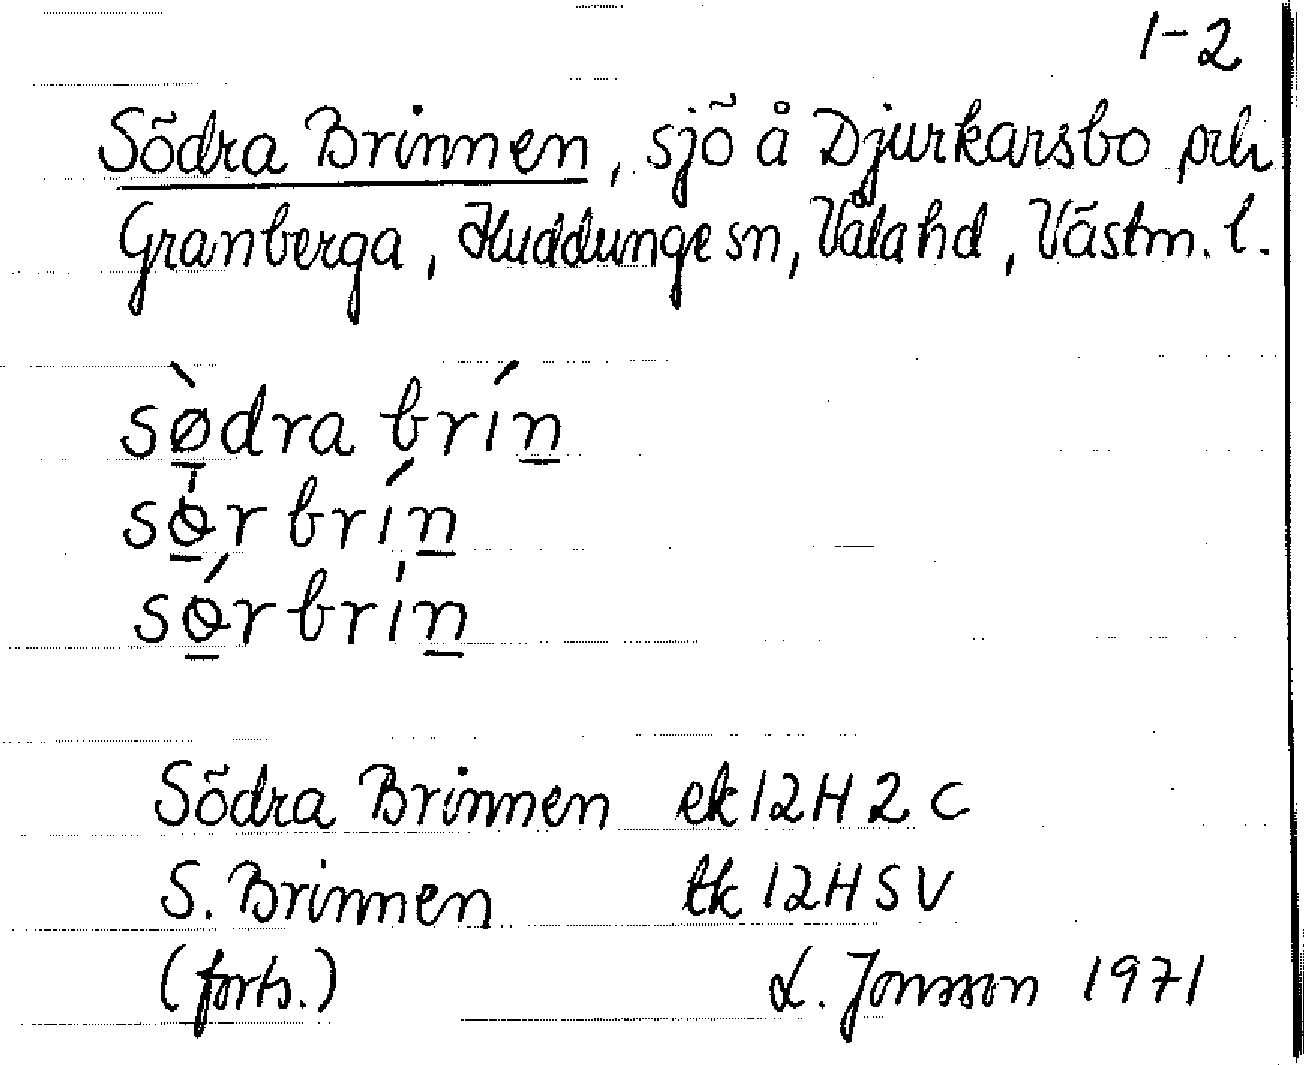 1-2
Södra Brinnen, sjö å Djurkarsbo och
Granberga, Huddunge sn, Våla hd, Västm. l.
sø̀dra brín
sør brín
sǿr brin
Södra Brinnen ek 12H 2 c
S. Brinnen tk 12H SV
(forts.) L. Jonsson 1971